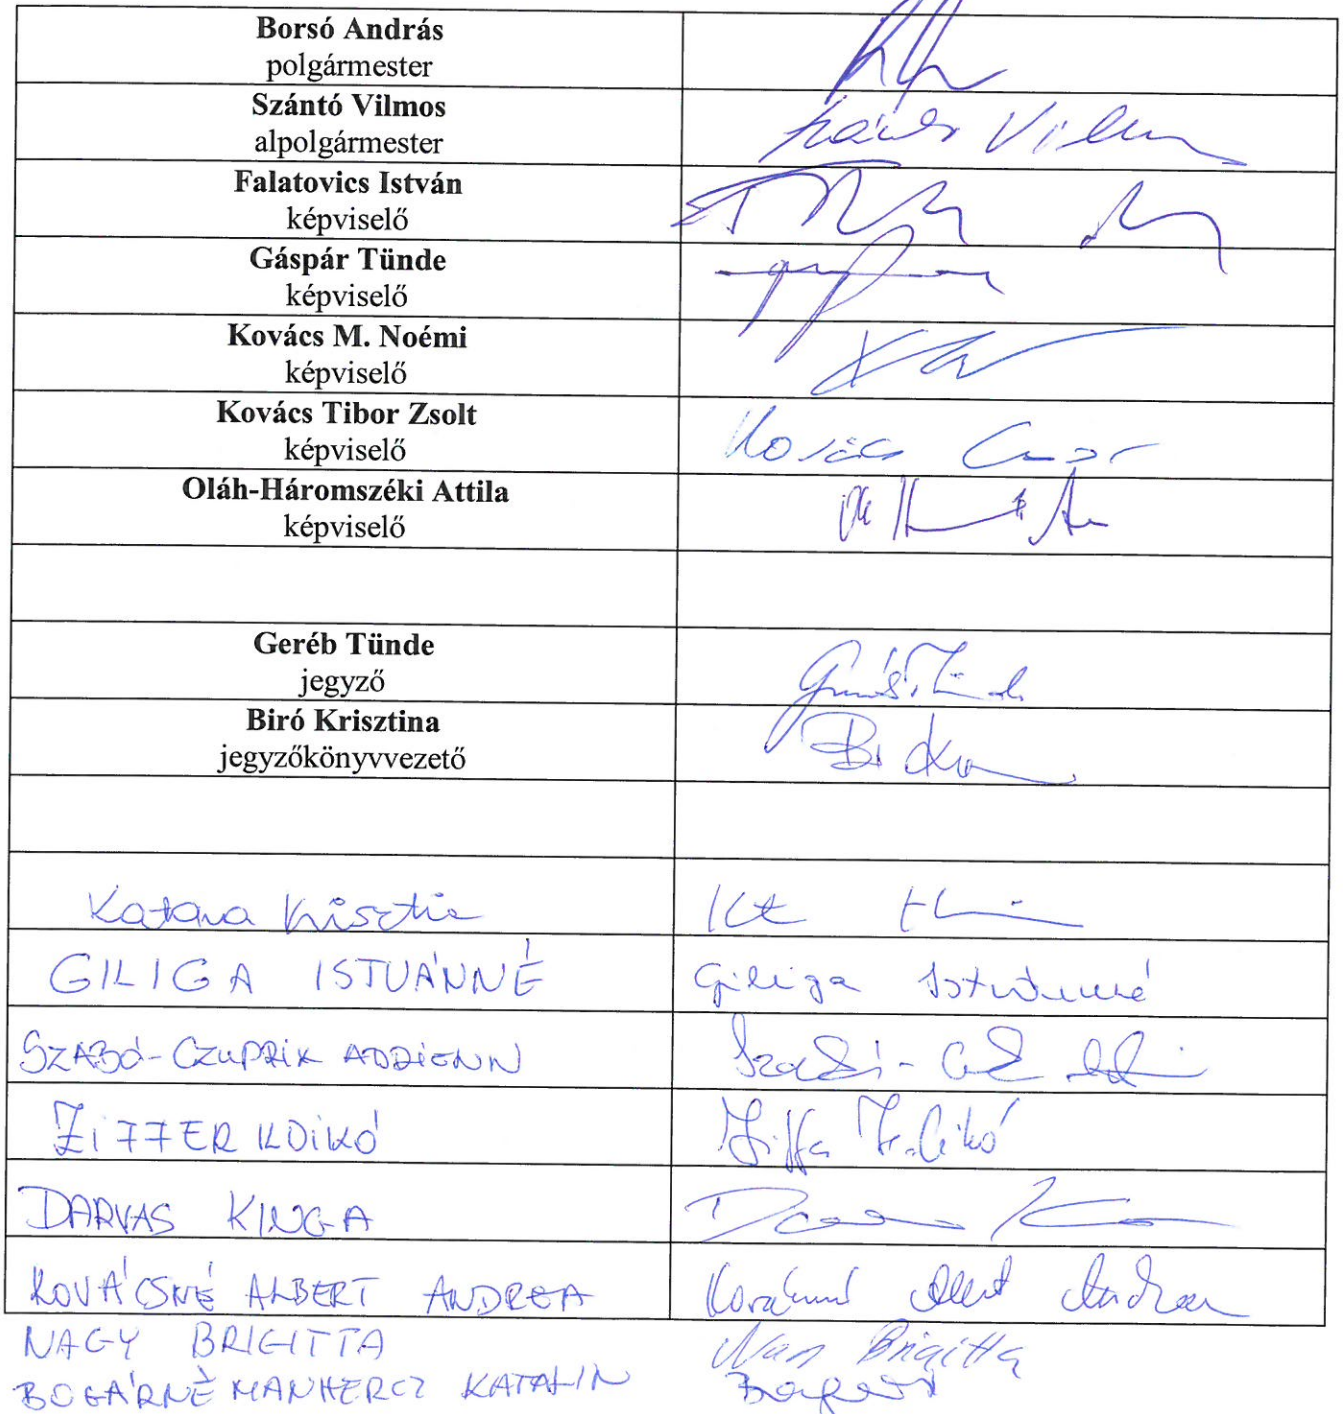 Borsó András
polgármester
Szántó Vilmos
alpolgármester
Falatovics István
képviselő
Gáspár Tünde
képviselő
Kovács M. Noémi
képviselő
Kovács Tibor Zsolt
képviselő
Kovács
Oláh-Háromszéki Attila
képviselő
Geréb Tünde
jegyző
Biró Krisztina
jegyzőkönyvvezető
Katona
GILIGA ISTVÁNNÉ Giliga Istvánné
SZABÓ-CZUPRIK ADRIENN
ZIFFER ILDIKÓ
DARVAS KINGA
KOVÁCSNÉ ALBERT ANDREA Kovácsné Albert Andrea
NAGY BRIGITTA Nagy Brigitta
BOGÁRNÉ MANHERCZ KATALIN